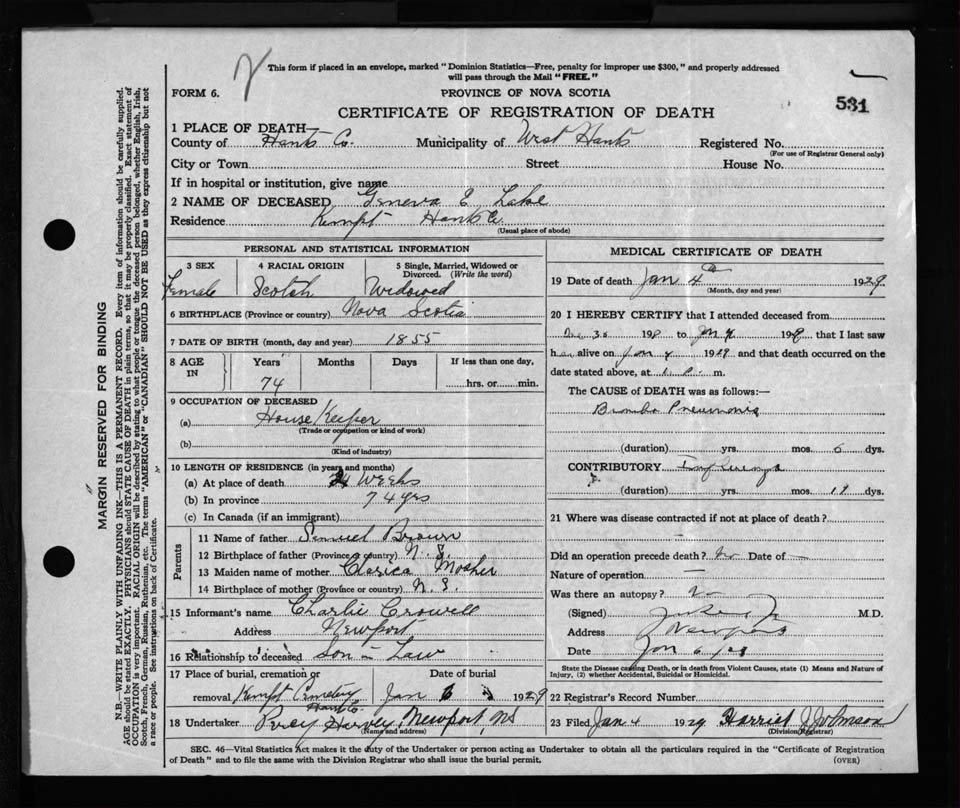 This form if placed in an envelope, marked "Dominion Statistics—Free, penalty for improper use $300," and properly addressed
will pass through the Mail "FREE."
FORM 6.
PROVINCE OF NOVA SCOTIA
531
CERTIFICATE OF REGISTRATION OF DEATH
1 PLACE OF DEATH—
County of Hants Co. Municipality of West Hants Registered No.
(For use of Registrar General only)
City or Town Street House No.
If in hospital or institution, give name
2 NAME OF DECEASED Geneva E Lake
Residence Kempt Hants Co
(Usual place of abode)
PERSONAL AND STATISTICAL INFORMATION
3 SEX 4 RACIAL ORIGIN 5 Single, Married, Widowed or
Divorced. (Write the word)
Female Scotch Widowed
6 BIRTHPLACE (Province or country) Nova Scotia
7 DATE OF BIRTH (month, day and year) 1855
8 AGE IN Years Months Days If less than one day,
74 hrs. or min.
9 OCCUPATION OF DECEASED
(a) House Keeper
(Trade or occupation or kind of work)
(b)
(Kind of industry)
10 LENGTH OF RESIDENCE (in years and months)
(a) At place of death weeks
(b) In province 74 yrs
(c) In Canada (if an immigrant)
Parents
11 Name of father Samuel Brown
12 Birthplace of father (Province or country) N. S.
13 Maiden name of mother Clarica Mosher
14 Birthplace of mother (Province or country) N. S.
15 Informant's name Charlie Crowell
Address Newport
16 Relationship to deceased Son in Law
17 Place of burial, cremation or Date of burial
removal Kempt Cemetery Jan 1929
Hants Co.
18 Undertaker Percy Harvey Newport, NS
(Name and address)
MEDICAL CERTIFICATE OF DEATH
19 Date of death Jan 4 1929
(Month, day and year)
20 I HEREBY CERTIFY that I attended deceased from
Dec 30 192 to Jan 4 192 that I last saw
her alive on Jan 4 1929 and that death occurred on
date stated above, at m.
The CAUSE of DEATH was as follows:—
Broncho Pneumonia
(duration) yrs. mos. dys.
CONTRIBUTORY Influenza
(duration) yrs. mos. dys.
21 Where was disease contracted if not at place of death?
Did an operation precede death? No Date of —
Nature of operation —
Was there an autopsy? No
(Signed) M.D.
Address Newport
Date Jan
State the Disease causing Death, or in death from Violent Causes, state (1) Means and Nature of
Injury, (2) whether Accidental, Suicidal or Homicidal.
22 Registrar's Record Number
23 Filed Jan 4 1929 Harriet J Johnson
(Division Registrar)
SEC. 46—Vital Statistics Act makes it the duty of the Undertaker or person acting as Undertaker to obtain all the particulars required in the "Certificate of Registration
of Death" and to file the same with the Division Registrar who shall issue the burial permit. (OVER)
MARGIN RESERVED FOR BINDING
N.B.—WRITE PLAINLY WITH UNFADING INK—THIS IS A PERMANENT RECORD. Every item of information should be carefully supplied.
AGE should be stated EXACTLY. PHYSICIANS should STATE CAUSE OF DEATH in plain terms, so that it may be properly classified. Exact statement of
OCCUPATION is very important. RACIAL ORIGIN will be described by stating to what people or tongue the deceased person belonged, whether English, Irish,
Scotch, French, German, Russian, Ruthenian, etc. The terms "AMERICAN" or "CANADIAN" SHOULD NOT BE USED as they express citizenship but not
a race or people. See instructions on back of Certificate.